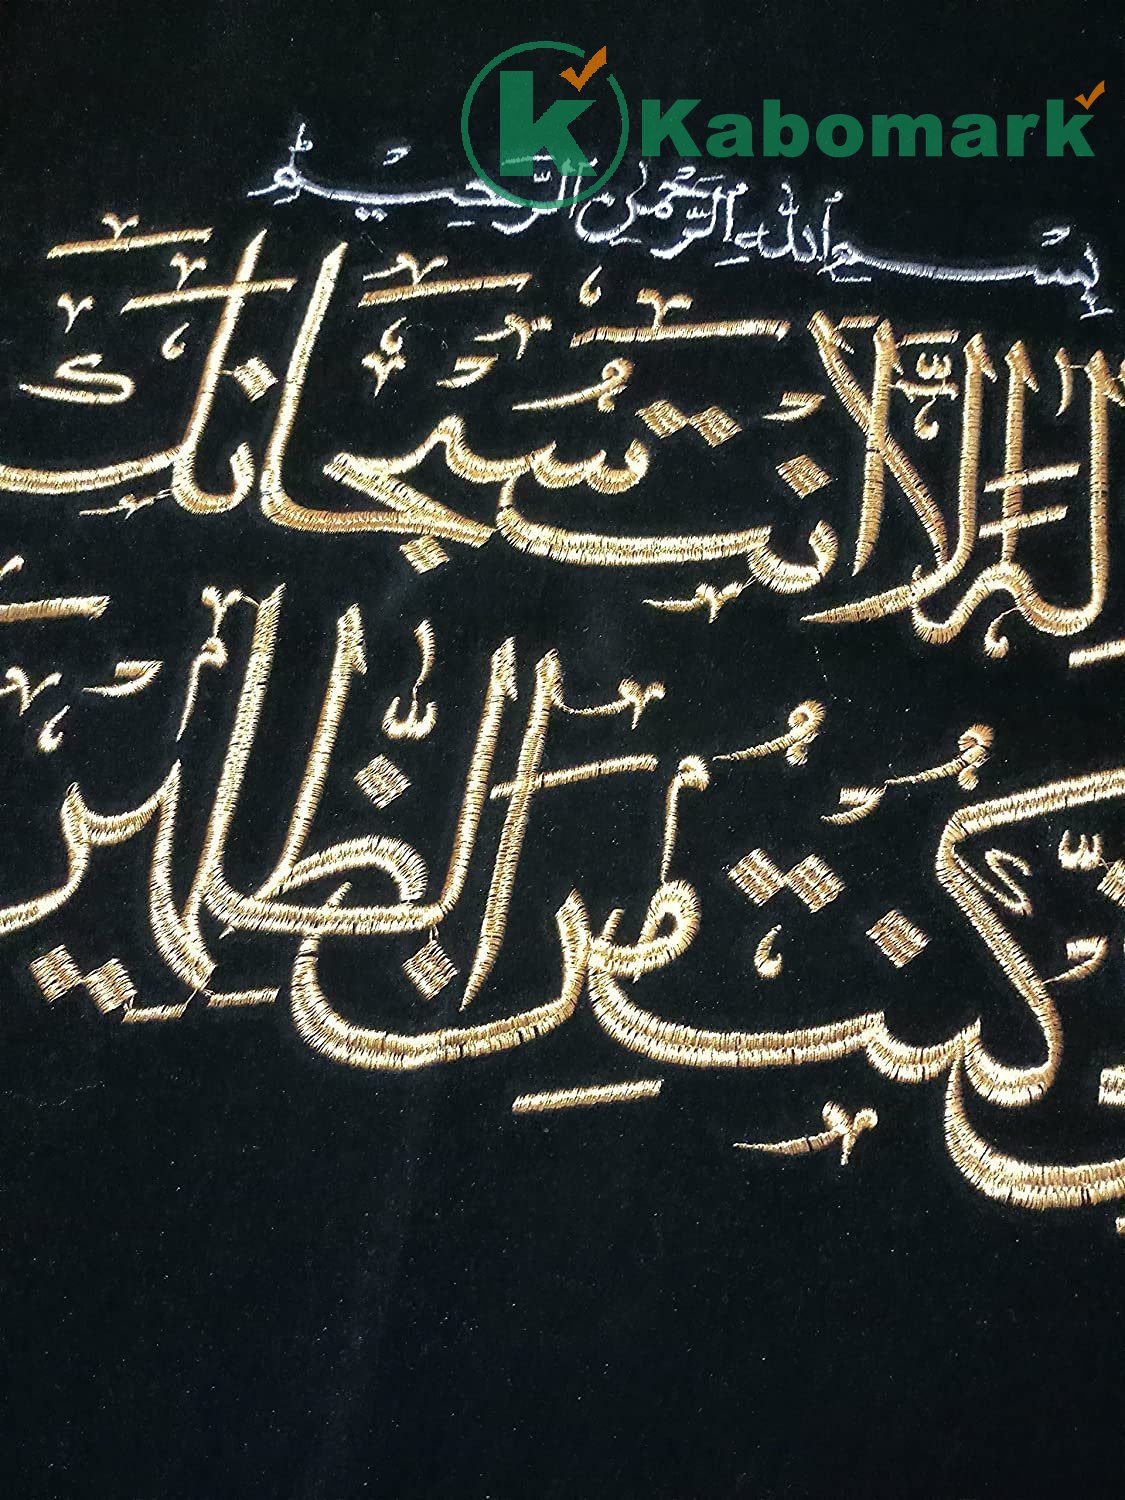 Kabomark
بِسْمِ اللهِ الرَّحْمٰنِ الرَّحِيْمِ
اِلٰهَ اِلَّا اَنْتَ سُبْحَانَكَ
كُنْتُ مِنَ الظَّالِمِيْنَ